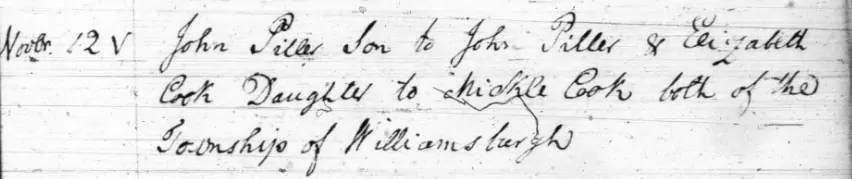 Novbr. 12 V John Piller Son to John Piller & Elizabeth
Cook Daughter to Mickle Cook both of the
Township of Williamsburgh